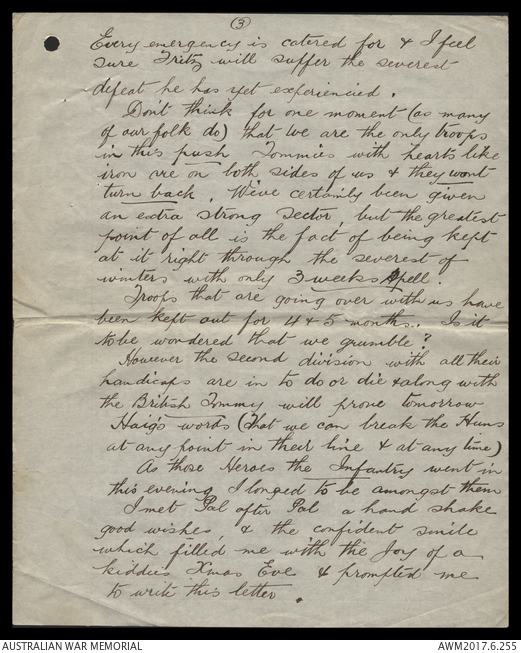 3
Every emergency is catered for & I feel
sure Fritz will suffer the severest
defeat he has yet experienced.
Don't think for one moment (as many
of our folk do) that we are the only troops
in this push Tommies with hearts like
iron are on both sides of us & they wont
turn back. We've certainly been given
an extra strong sector, but the greatest
point of all is the fact of being kept
at it right through the severest of
winters with only 3 weeks spell.
Troops that are going over with us have
been kept out for 4 & 5 months. Is it
to be wondered that we grumble?
However the second division with all their
handicaps are in to do or die & along with
the British Tommy will prove tomorrow
Haig's words (that we can break the Huns
at any point in their line & at any time)
As those Heroes the Infantry went in
this evening I longed to be amongst them
I met Pal after Pal a hand shake
good wishes, & the confident smile
which filled me with the Joy of a
kiddies Xmas Eve & prompted me
to write this letter.
AUSTRALIAN WAR MEMORIAL
AWM2017.6.255